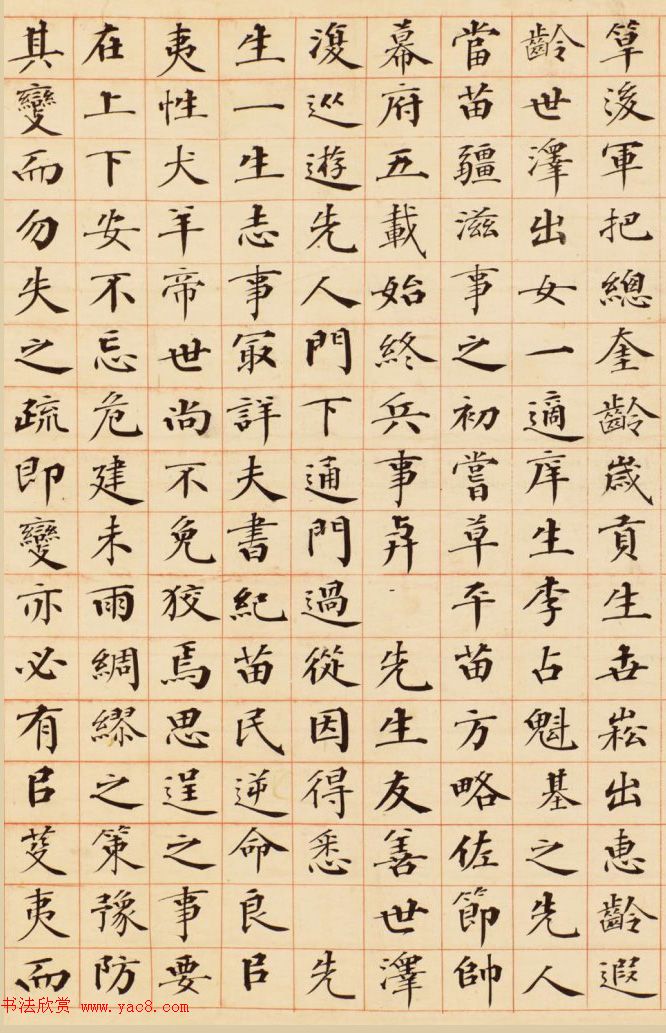 筸後軍把總奎齡歲貢生世崧出惠齡遐
齡世澤出女一適庠生李占魁基之先人
當苗疆滋事之初嘗草平苗方略佐節帥
幕府五載始終兵事與 先生友善世澤
復從遊先人門下通門過從因得悉 先
生一生志事最詳夫書紀苗民逆命良㠯
夷性犬羊帝世尚不免狡焉思逞之事要
在上下安不忘危建未雨綢繆之策豫防
其變而勿失之疏即變亦必有㠯芟夷而
书法欣赏 www.yac8.com